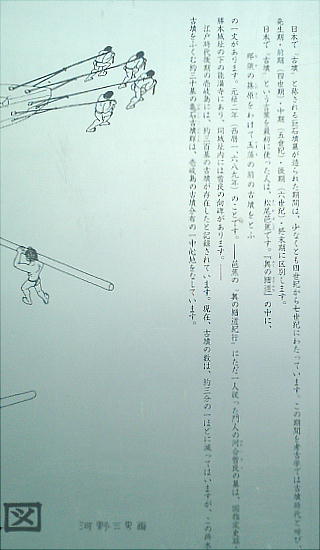 日本で「古墳」と称される記石墳墓が造られた期間は、少なくとも四世紀から七世紀にわたっています。この期間を考古学では古墳時代と呼び、
発生期・前期(四世紀)・中期(五世紀)・後期(六世紀)・終末期に区別します。
日本で「古墳」という言葉を最初に使った人は、松尾芭蕉です。『奥の細道』の中に、
那須の篠原をわけて玉藻の前の古墳をとふ
の一文があります。元禄二年(西暦一、六八九年)のことです。――芭蕉の『奥の細道紀行』にただ一人従った門人の河合曽良の墓は、国指定史跡
勝本城址の下の能満寺にあり、同城址内には曽良の句碑があります。――
江戸時代後期の壱岐島には、約三百基の古墳が存在したと記録されています。現在、古墳の数は、約三分の一ほどに減ってはいますが、この
古墳をふくむ約三十基の亀石古墳群は、壱岐島の古墳分布の一中心地をなしています。
図
河野三男画